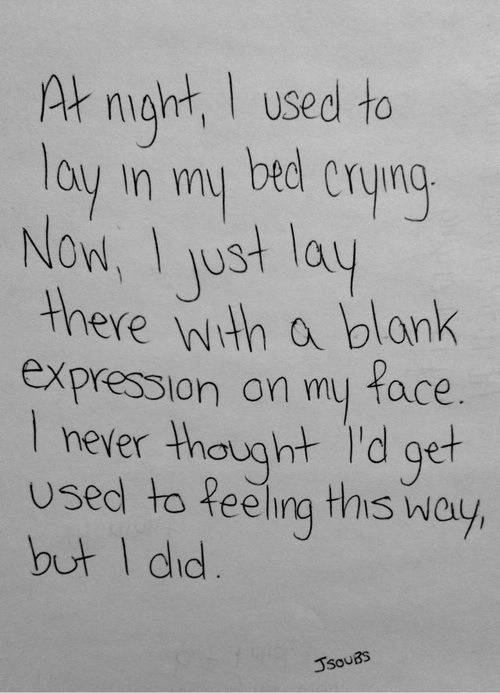 At night, I used to
lay in my bed crying.
Now, I just lay
there with a blank
expression on my face.
I never thought I'd get
used to feeling this way,
but I did.
JSOUBS